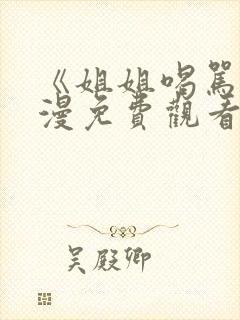 《姐姐喝罵
漫免費觀看
吴殿卿